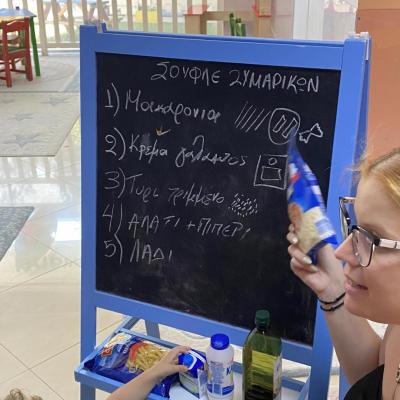 ΣΟΥΦΛΕ ΖΥΜΑΡΙΚΩΝ
1) Μακαρόνια
2) Κρέμα γάλακτος
3) Τυρί τριμμένο
4) ΑΛΑΤΙ + ΠΙΠΕΡΙ
5) ΛΑΔΙ